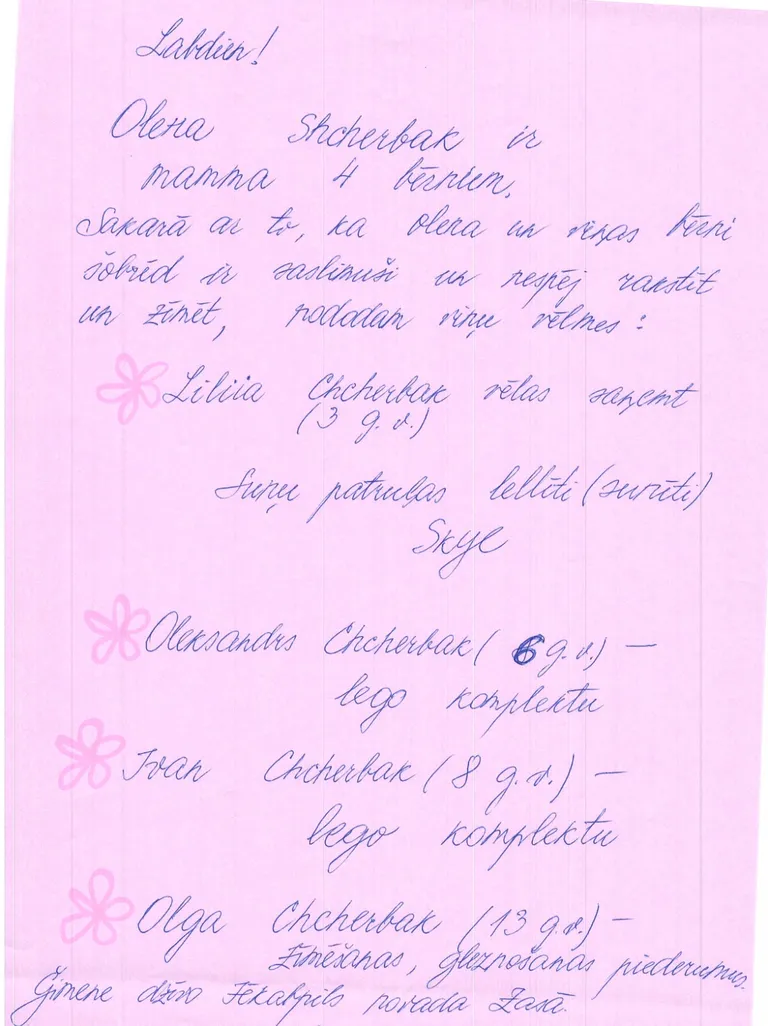 Labdien!
Olena Shcherbak ir
mamma 4 bērniem.
Sakarā ar to, ka Olena un viņas bērni
šobrīd ir saslimuši un nespēj rakstīt
un zīmēt, nododam viņu vēlmes:
Liliia Chcherbak vēlas saņemt
(3 g. v.)
Suņu patruļas lellīti (suvīti)
Skye
Oleksandrs Chcherbak (6 g.v.) —
lego komplektu
Ivan Chcherbak (8 g.v.) —
lego komplektu
Olga Chcherbak (13 g.v.) —
Zīmēšanas, gleznošanas piederumus.
Ģimene dzīvo Jēkabpils novada Zasā.